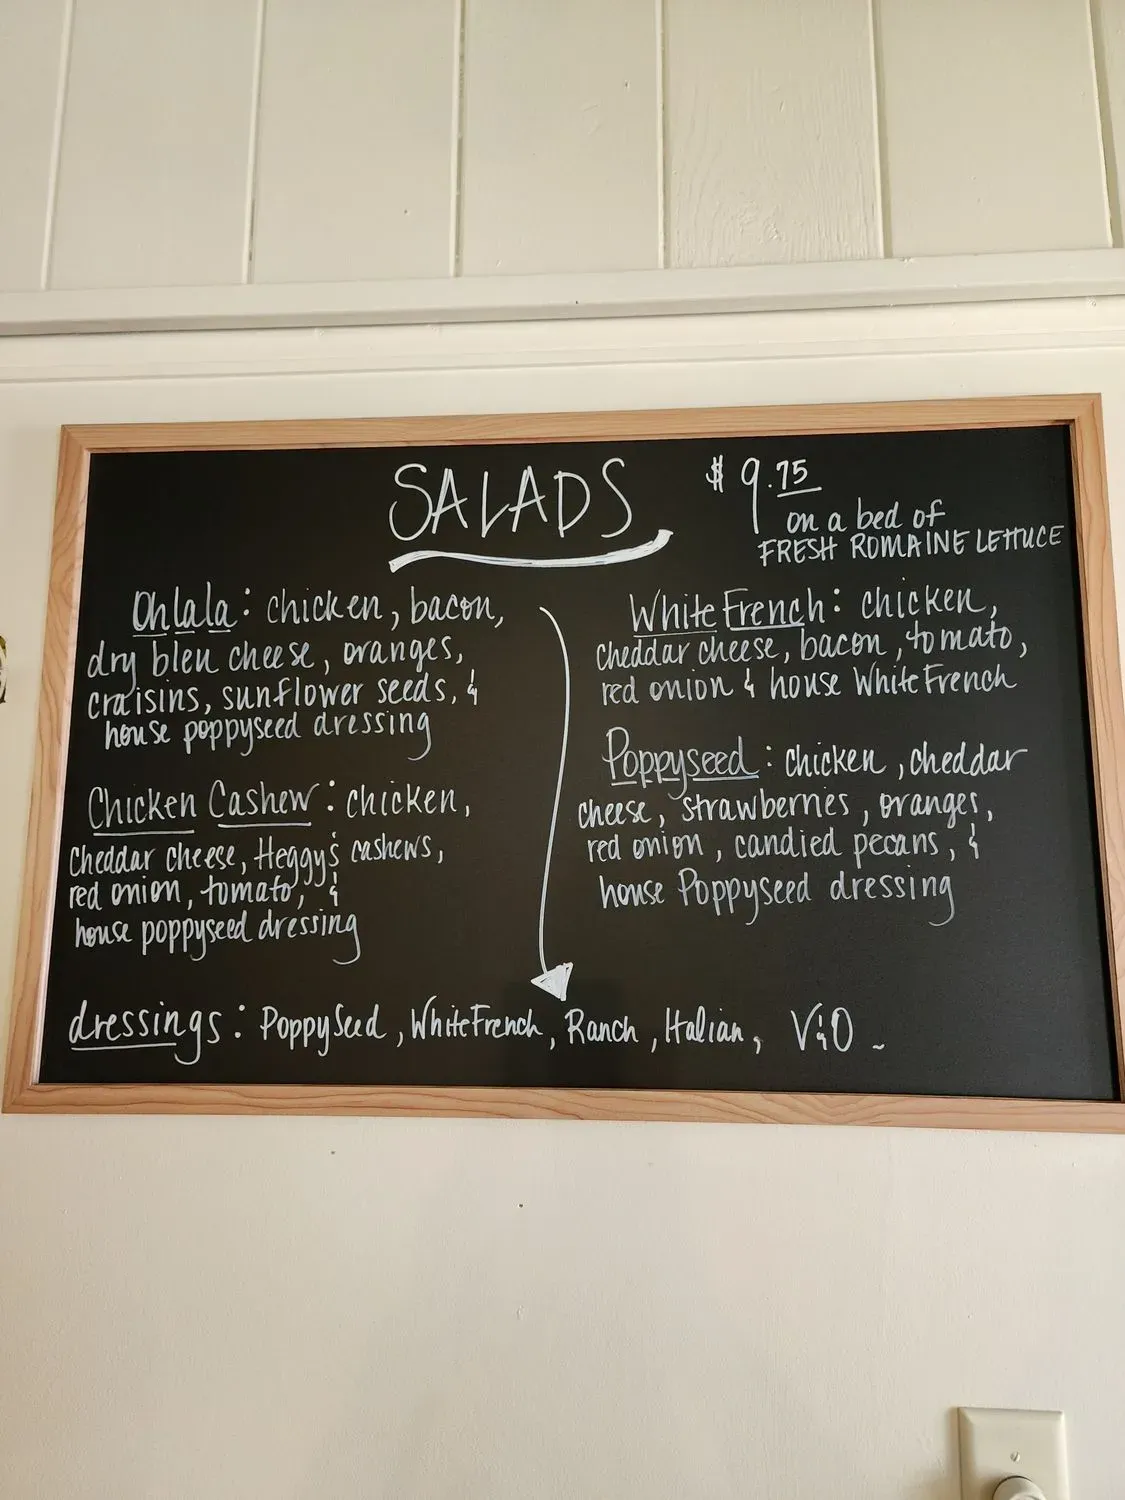 SALADS
$9.75
on a bed of
FRESH ROMAINE LETTUCE
Ohlala: chicken, bacon,
dry bleu cheese, oranges,
craisins, sunflower seeds, &
house poppyseed dressing
Chicken Cashew: chicken,
cheddar cheese, Heggy's cashews,
red onion, tomato, &
house poppyseed dressing
White French: chicken,
cheddar cheese, bacon, tomato,
red onion & house White French
Poppyseed: chicken, cheddar
cheese, strawberries, oranges,
red onion, candied pecans, &
house Poppyseed dressing
dressings: PoppySeed, White French, Ranch, Italian, V&O